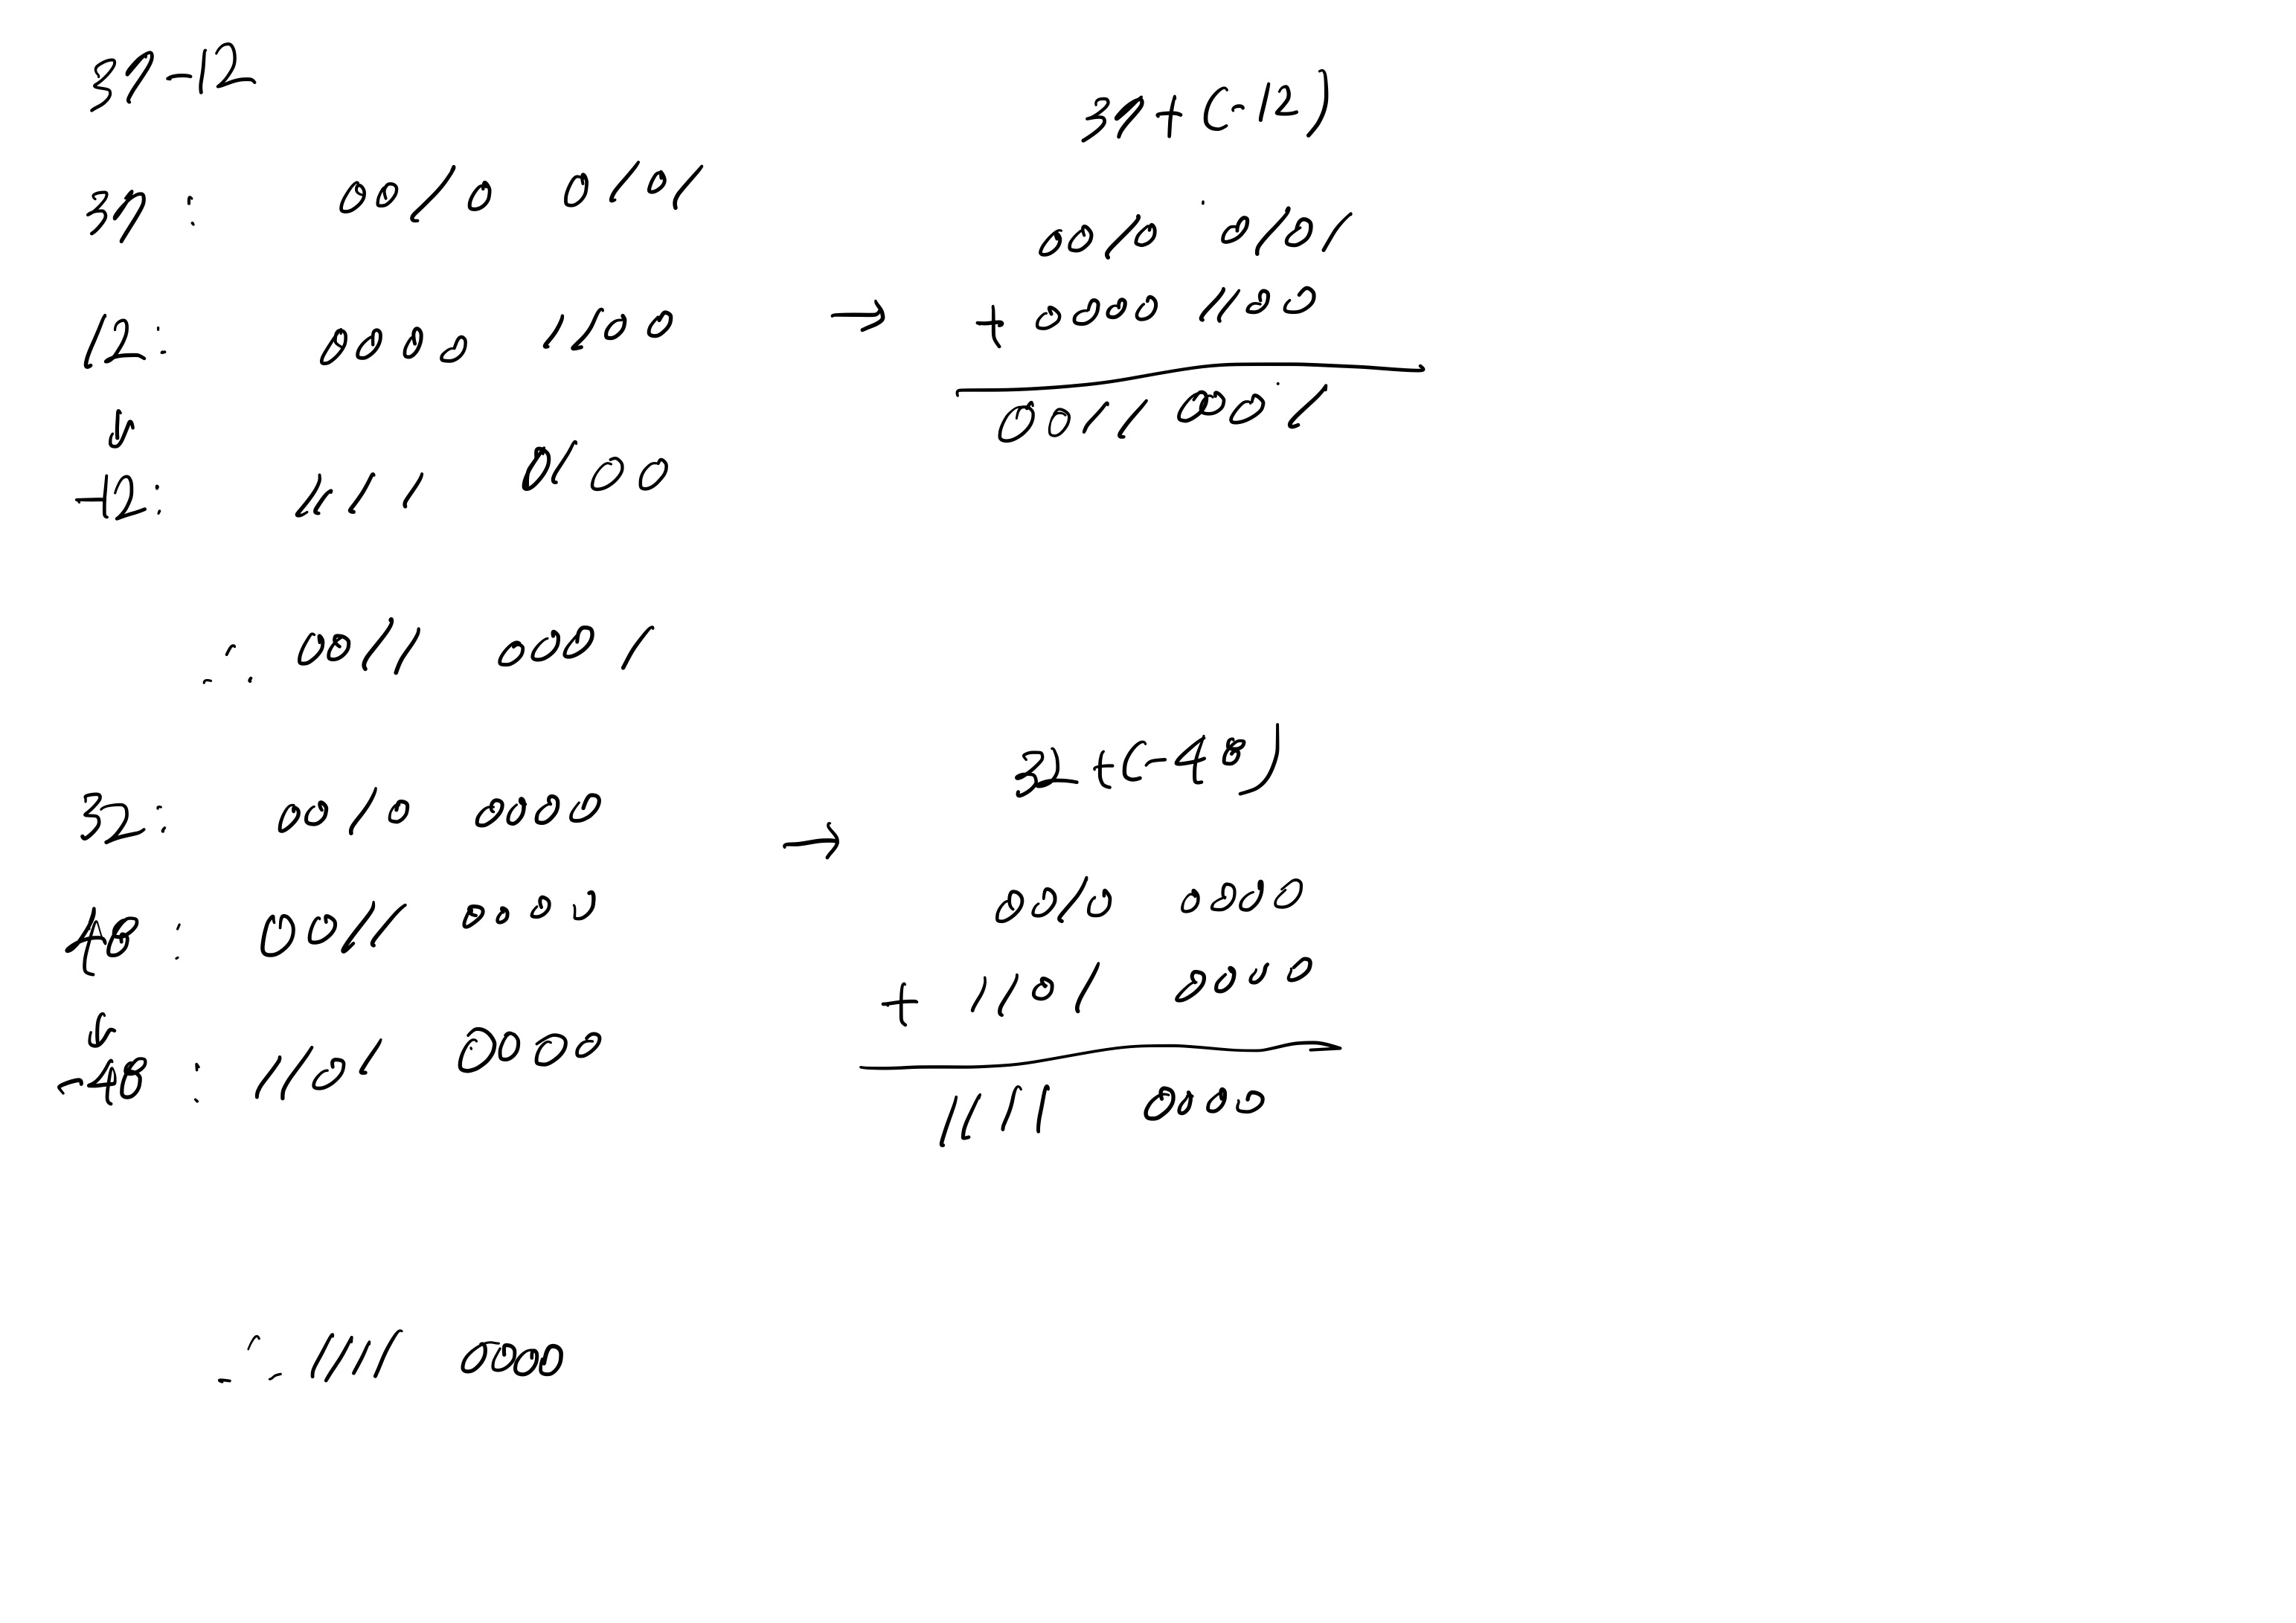 37-12
37 : 0010 0101
12: 0000 1100
↓
-12: 1111 0100
∴ 0011 0001
37+(-12)
→ 0010 0101
+ 0000 1100
0011 0001
32: 0010 0000
48 : 0011 0000
↓
-48 : 1101 0000
∴ 1111 0000
32+(-48)
→
0010 0000
+ 1101 0000
1111 0000